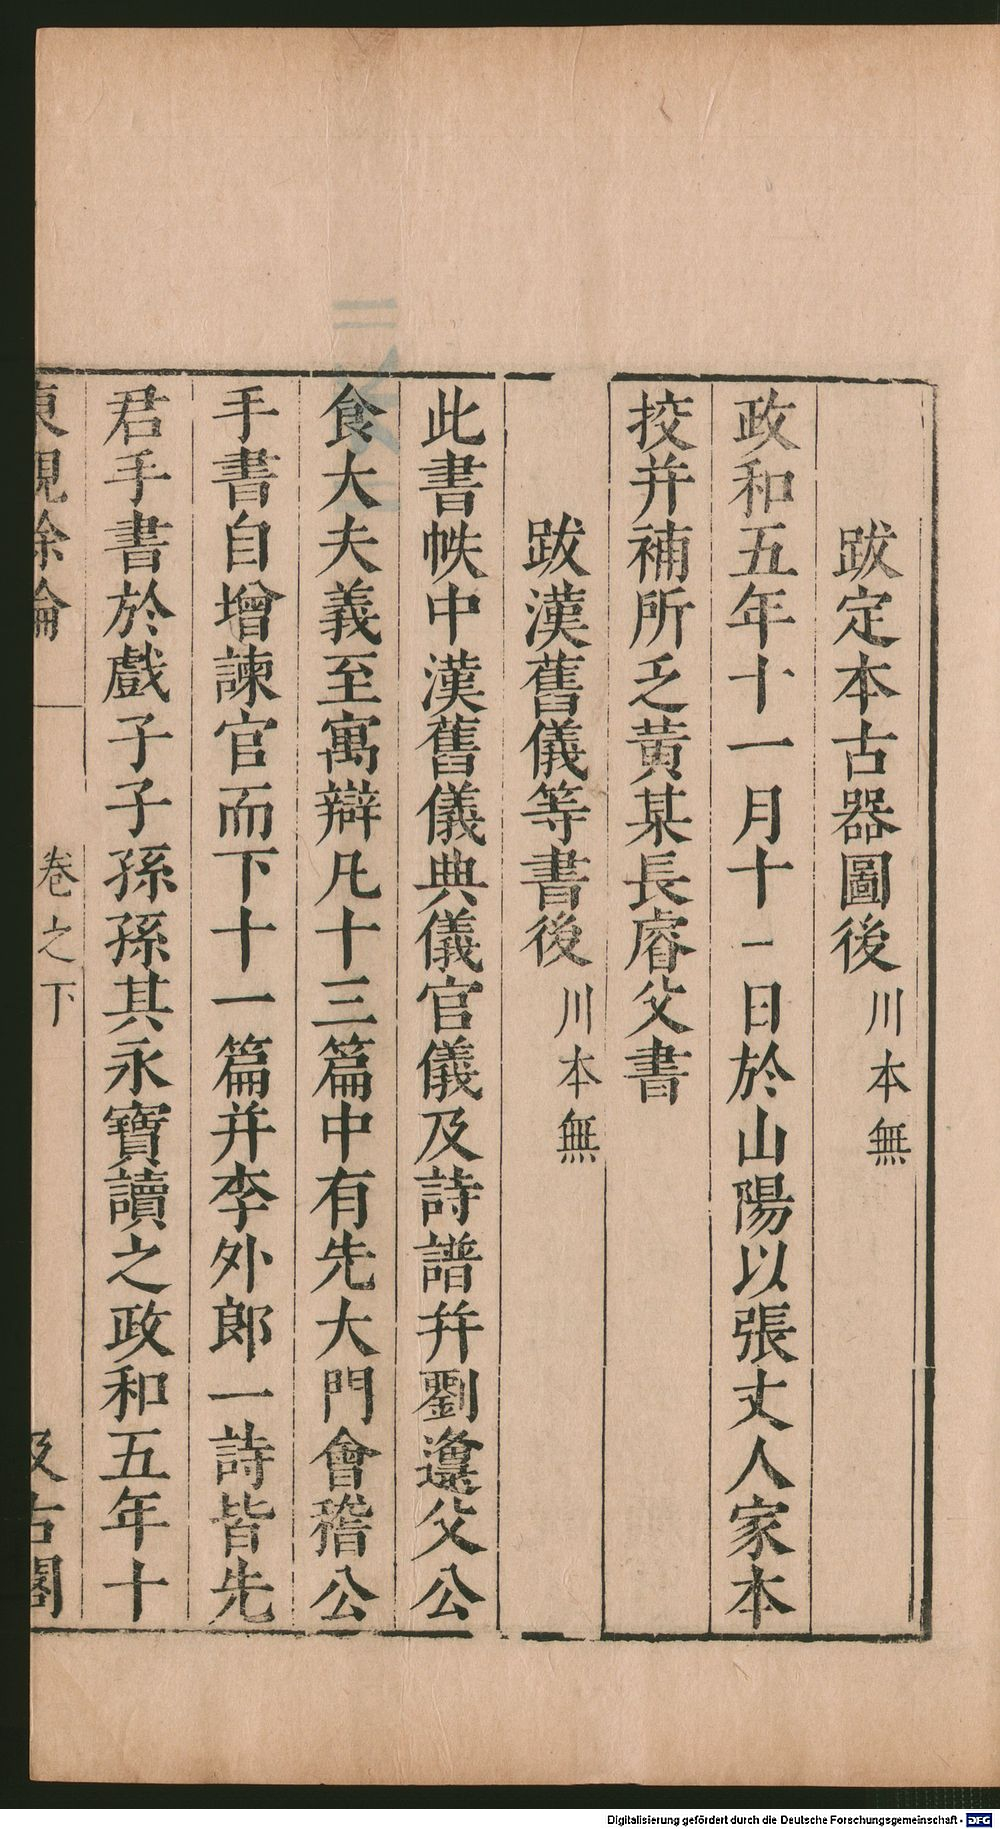 跋定本古器圖後川本無
政和五年十一月十一日於山陽以張丈人家本
挍并補所乏黃某長睿父書
跋漢舊儀等書後川本無
此書帙中漢舊儀典儀官儀及詩譜并劉𨗿父公
食大夫義至寓辯凡十三篇中有先大門會稽公
手書自增諫官而下十一篇并李外郎一詩皆先
君手書於戲子子孫孫其永寶讀之政和五年十
東觀餘論
卷之下
汲古閣
Digitalisierung gefördert durch die Deutsche Forschungsgemeinschaft - DFG